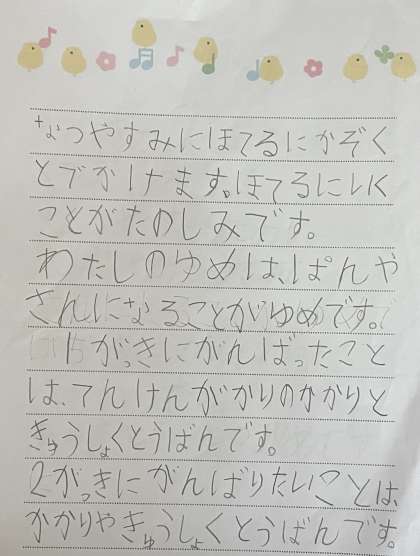 なつやすみにほてるにかぞく
とでかけます。ほてるにいく
ことがたのしみです。
わたしのゆめは、ぱんや
さんになることがゆめです。
1がっきにがんばったこと
は、てんけんがかりのかかりと
きゅうしょくとうばんです。
2がっきにがんばりたいことは、
かかりやきゅうしょくとうばんです。